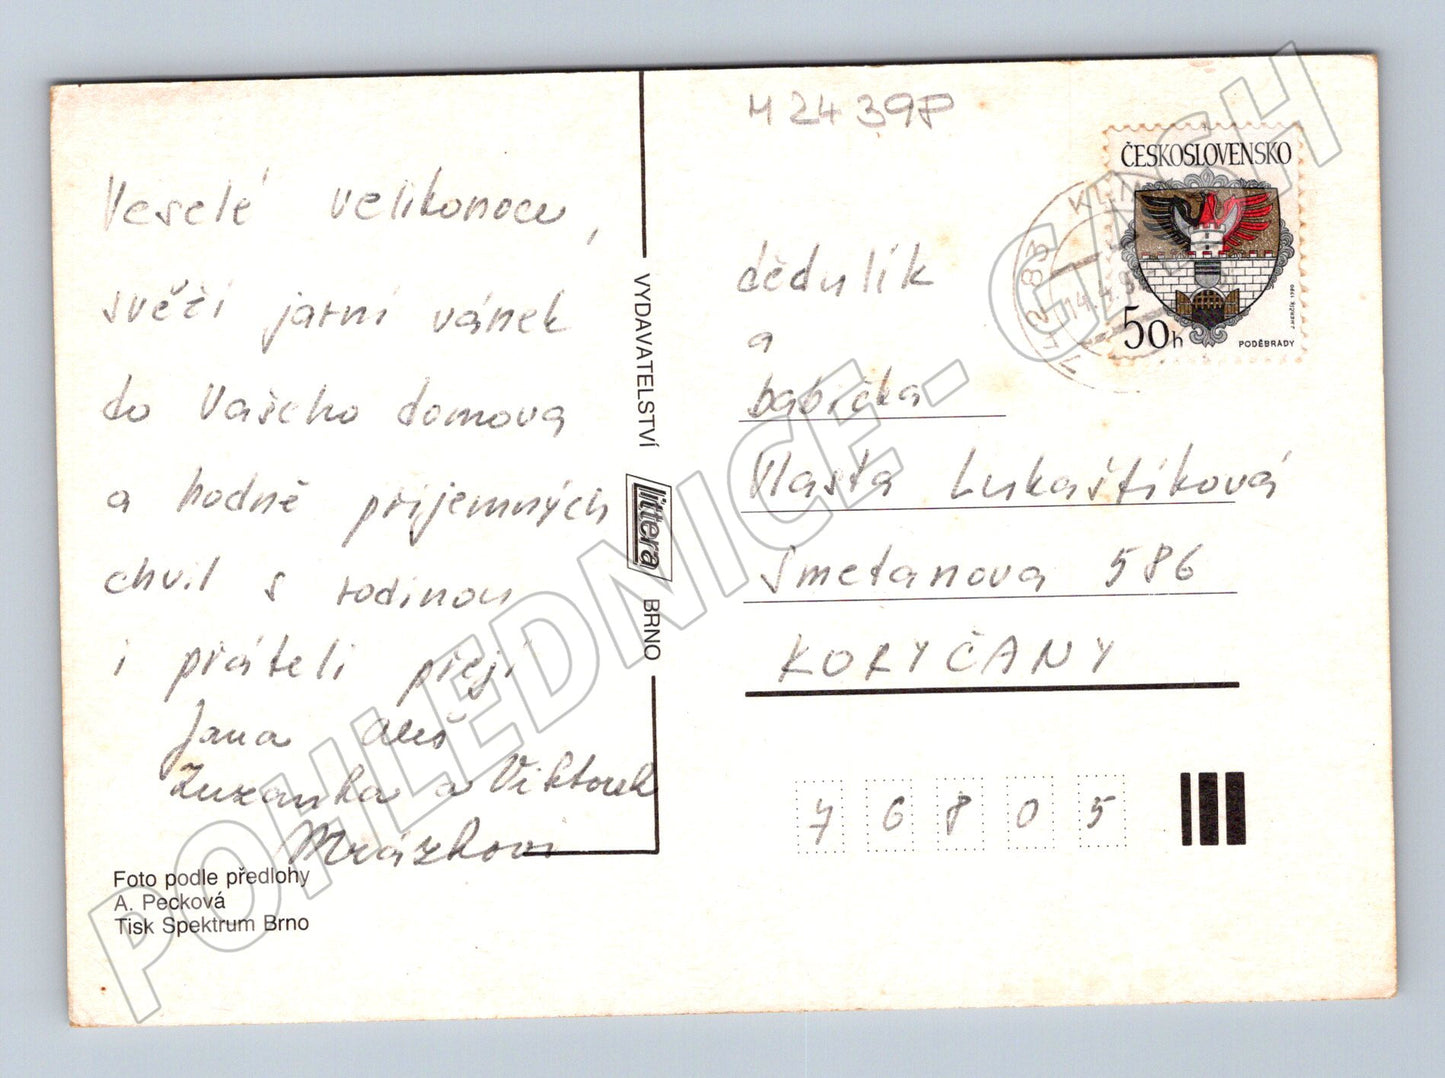 Veselé velikonoce,
svěží jarní vánek
do Vašeho domova
a hodně příjemných
chvil s rodinou
i přáteli přejí
Jana Aleš
Zuzanka a Viktorek
Mrázkovi
Foto podle předlohy
A. Pecková
Tisk Spektrum Brno
VYDAVATELSTVÍ littera BRNO
M2439P
ČESKOSLOVENSKO
50h
PODĚBRADY
dědulík
a
babička
Vlasta Lukaštíková
Smetanova 586
KORYČANY
76805
POHLEDNICE - CASH